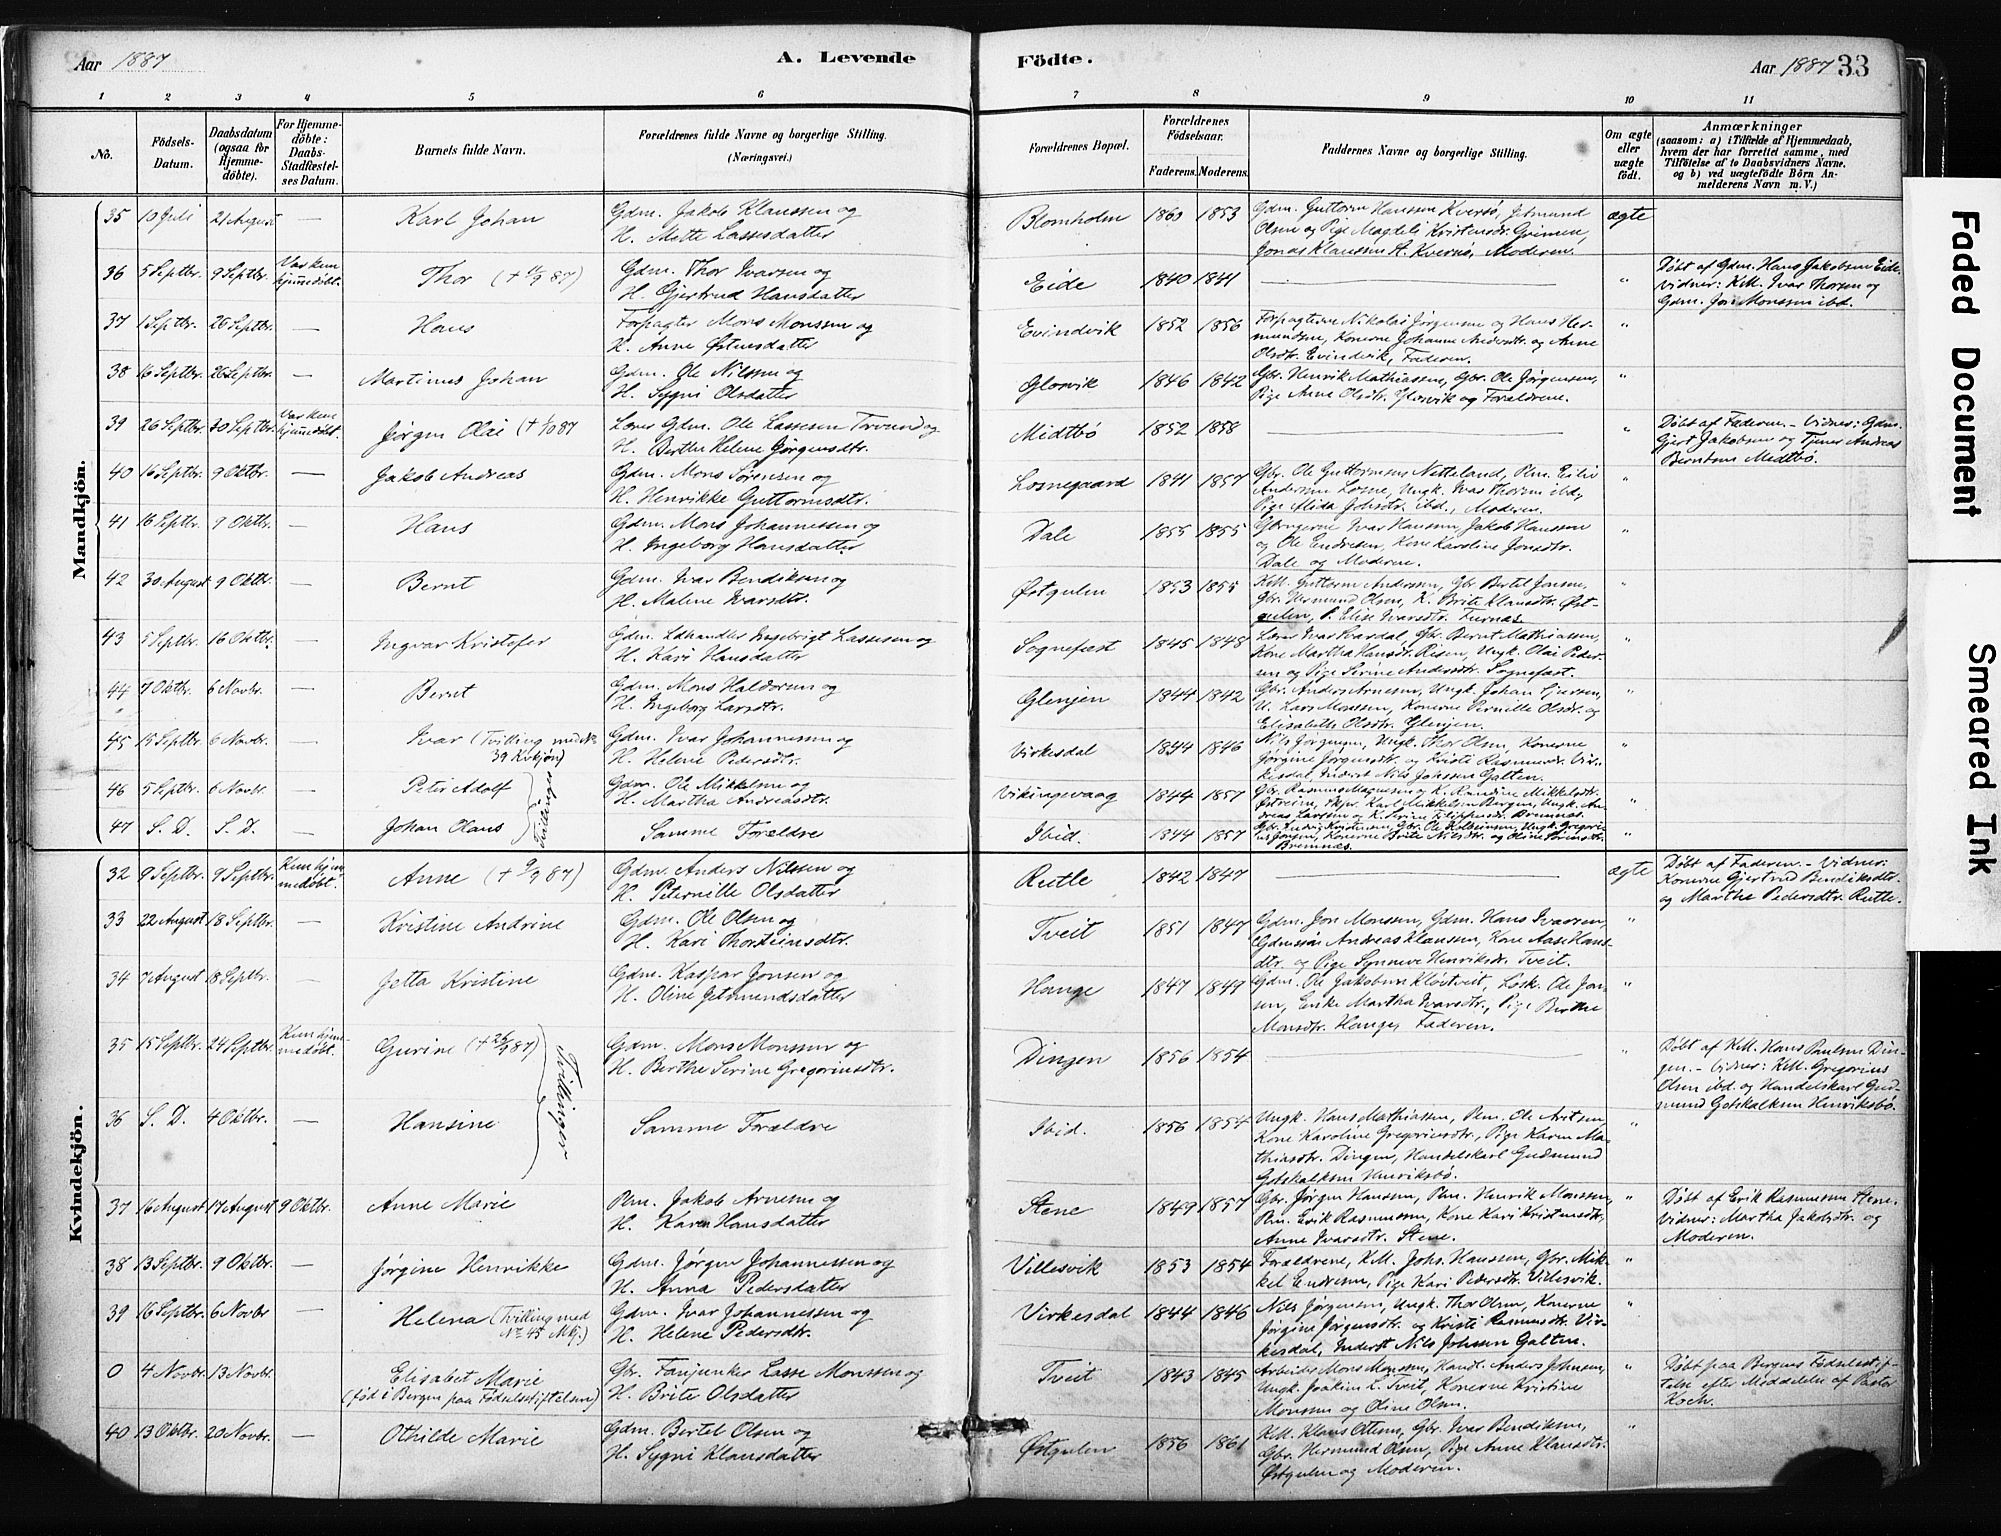 Aar 1887
A. Levende
Födte.
Aar 1887 33
1 2 3 4 5 6 7 8 9 10 11
No.
Födsels-Datum.
Daabsdatum (ogsaa for Hjemme-döbte).
For Hjemme-döbte: Daabs-Stadfæstel-ses Datum.
Barnets fulde Navn.
Forældrenes fulde Navne og borgerlige Stilling.
(Næringsvei.)
Forældrenes Bopæl.
Forældrenes Födselsaar.
Faderens. Moderens.
Faddernes Navne og borgerlige Stilling.
Om ægte eller uægte födt.
Anmærkninger
(saasom: a) i Tilfælde af Hjemmedaab, hvem der har forrettet samme, med Tilföielse af to Daabsvidners Navne. og b) ved uægtefödte Börn An-melderens Navn m. V.)
Mandkjön.
35 10 Juli 21 August — Karl Johan Gdm. Jakob Klaussen og
H. Mette Lassesdatter Blomholm 1860 1853 Gdm. Guttorm Hanssen Kversø, Jetmund
Olsen og Pige Magteli Kristensdtr. Grimen,
Jonas Klaussen A. Kversø, Moderen. ægte
36 5 Septbr. 9 Septbr. Var kun hjemmedøbt. Thor Gdm. Thor Ivarsen og
H. Gjertrud Hansdatter Eide 1840 1841 — " Døbt af Gdm. Hans Jakobsen Eide.
Vidner: KM. Ivar Thorsen og
Gdm. Jon Monssen ibd.
37 1 Septbr. 26 Septbr. — Hans Forpagter Mons Monssen og
H. Anne Østensdatter Evindvik 1852 1856 Forpagterne Nikolai Jørgensen og Hans Her-
mundsen, Konerne Johanne Andersdtr. og Anne
Olsdtr. Evindvik, Faderen. "
38 16 Septbr. 26 Septbr. — Martinus Johan Gdm. Ole Nilssen og
H. Sygni Olsdatter Glosvik 1846 1842 Gbr. Henrik Mathiassen, Gbr. Ole Jørgensen,
Pige Anne Olsdtr. Glosvik og Forældrene. "
39 26 Septbr. 30 Septbr. Var kun hjemmedøbt. Jørgen Olai Lærer Gdm. Ole Lassesen og
H. Berthe Helene Jørgensdtr. Midtbø 1852 1858 — " Døbt af Faderen. - Vidner: Gdm.
Gjert Jakobsen og Tjener Andreas
Berntsen Midtbø.
40 16 Septbr. 9 Oktbr. — Jakob Andreas Gdm. Mons Sørensen og
H. Henrikke Guttormsdtr. Losnegaard 1841 1857 Gbr. Ole Guttormsen Netteland, Plm. Eilif
Andersen Losne, Ungk. Ivar Thorsen ibd.,
Pige Alida Johsdtr. ibd., Moderen. "
41 16 Septbr. 9 Oktbr. — Hans Gdm. Mons Johannessen og
H. Ingeborg Hansdatter Dale 1855 1855 Gbrugerne Ivar Hanssen, Jakob Hanssen
og Ole Endresen, Kone Karoline Jonsdtr.
Dale og Moderen. "
42 30 August 9 Oktbr. — Bernt Gdm. Ivar Bendiksen og
H. Malene Ivarsdtr. Østgulen 1853 1855 KM. Guttorm Anderssen, Gbr. Bertel Jonsen,
Gbr. Hermund Olsen, K. Brite Klausdtr. Øst-
gulen, P. Elise Ivarsdtr. Furnæs. "
43 5 Septbr. 16 Oktbr. — Ingvar Kristofer Gdm. Ldhandler Ingebrigt Lassesen og
H. Kari Hansdatter Sognefæst 1845 1848 Lærer Ivar Hvardal, Gbr. Bernt Mathiassen,
Kone Martha Hansdtr. Risen, Ungk. Olai Peder-
sen og Pige Serine Andersdtr. Sognefæst. "
44 7 Oktbr. 6 Novbr. — Bernt Gdm. Mons Haldorsen og
H. Ingeborg Larsdtr. Glenjen 1844 1842 Gbr. Anders Arnesen, Ungk. Johan
U. Lars Monssen, Konerne Pernille Olsdtr. og
Elisabeth Olsdtr. Glenjen. "
45 15 Septbr. 6 Novbr. — Ivar (Tvilling med No
39 Kvkjøn) Gdm. Ivar Johannessen og
H. Helene Pedersdtr. Virkesdal 1844 1846 Nils Jørgensen, Ungk. Thor Olsen, Konerne
Jørgine Jørgensdtr. og Kristi Rasmusdtr. Vir-
kesdal, Inderst Nils Johssen Galten. "
46 5 Septbr. 6 Novbr. — Peter Adolf Gdm. Ole Mikkelsen og
H. Martha Andreasdtr. Vikingevaag 1844 1857 Gbr. Rasmus Magnesen og K. Mikkelsdtr.
Østreim, Skpr. Karl Mikkelsen Bergen, Ungk. An-
dreas Larssen og K. Serine Filippusdtr. Bremnæs. "
47 S. D. S. D. Johan Olaus Tvillinger Samme Forældre Ibid. 1844 1857 Gbr. Ludvig Kristensen, Gbr. Ole Kolbeinsen, Ungk. Gregori-
us Jørgen, Konerne Brite Nilsdtr. og Oline Sørensdtr.
Bremnæs. "
Kvindekjön.
32 9 Septbr. 9 Septbr. Kun hjem-medøbt. Anne (+ 9/9 87) Gdm. Anders Nilssen og
H. Peternille Olsdatter Rutle 1842 1847 ægte Døbt af Faderen. - Vidner:
Konerne Gjertrud Bendiksdtr.
og Martha Pedersdtr. Rutle.
33 22 August 18 Septbr. — Kristine Andrine Gdm. Ole Olsen og
H. Kari Thorsteinsdtr. Tveit 1851 1847 Gdm. Jon Monssen, Gdm. Hans Ivarsen,
Gdmssøn Andreas Klaussen, Kone Aase Hans-
dtr. og Pige Synneve Henriksdtr. Tveit. "
34 7 August 18 Septbr. — Jetta Kristine Gdm. Kaspar Jonsen og
H. Oline Jetmundsdatter Hauge 1847 1847 Gdm. Ole Jakobsen Kløvtveit, Løsk. Ole Jon-
sen, Enke Martha Ivarsdtr., Pige Birthe
Monsdtr. Hauge, Faderen. "
35 15 Septbr. 24 Septbr. Kun hjem-medøbt. Gurine (+ 26/9 87) Gdm. Mons Monssen og
H. Berthe Serine Gregoriusdtr. Dingen 1856 1854 — " Døbt af KM. Hans Paulsen Din-
gen. - Vidner: KM. Gregorius
Olsen ibd. og Handelskarl Gud-
mund Gotskalksen Henriksbø.
36 S. D. 4 Oktbr. — Hansine Tvillinger Samme Forældre Ibid. 1856 1854 Ungk. Hans Mathiassen, Plm. Ole Avitsen,
Kone Karoline Gregoriusdtr., Pige Karen Ma-
thiasdtr. Dingen, Handelskarl Gudmund
Gotskalksen Henriksbø. "
37 16 August 17 August 9 Oktbr. Anne Marie Plm. Jakob Arnesen og
H. Karen Hansdatter Stene 1849 1857 Gbr. Jørgen Hanssen, Plm. Henrik Monssen,
Plm. Erik Rasmussen, Kone Kari Kristensdtr.,
Anne Ivarsdtr. Stene. " Døbt af Erik Rasmussen Stene.
Vidner: Martha Jakobsdtr. og
Moderen.
38 13 Septbr. 9 Oktbr. — Jørgine Henrikke Gdm. Jørgen Johannessen og
H. Anna Pedersdatter Villesvik 1853 1854 Forældrene, KM. Johs. Hanssen, Gbr. Mik-
kel Endresen, Pige Kari Pedersdtr. Villesvik. "
39 16 Septbr. 6 Novbr. — Helena (Tvilling med
No 45 Mkj.) Gdm. Ivar Johannessen og
H. Helene Pedersdtr. Virkesdal 1844 1846 Nils Jørgensen, Ungk. Thor Olsen, Konerne
Jørgine Jørgensdtr. og Kristi Rasmusdtr. Vir-
kesdal, Inderst Nils Johssen Galten. "
0 4 Novbr. 13 Novbr. Elisabet Marie
(fød i Bergen paa Fødselsstiftelsen) Gbr. Fanjunker Lasse Monssen og
H. Brite Olsdatter Tveit 1843 1845 Arbeider Mons Monssen, Handl. Anders Johnsen,
Ungk. Joakim L. Tveit, Konerne Kristine
Monssen og Oline Olsen. " Døbt paa Bergens Fødselsstif-
telse efter Meddelelse af Pastor
Koch.
40 13 Oktbr. 20 Novbr. Othilde Marie Gdm. Bertel Olsen og
H. Sygni Klausdatter Østgulen 1856 1861 KM. Klaus Ottesen, Gbr. Ivar Bendiksen,
Gbr. Hermund Olsen, Pige Anne Klausdtr.
Østgulen og Moderen. "
Faded Document
Smeared Ink